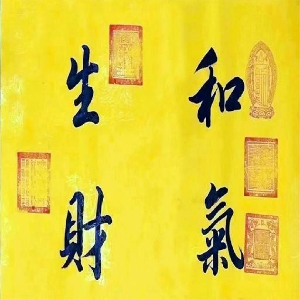 和氣
生財